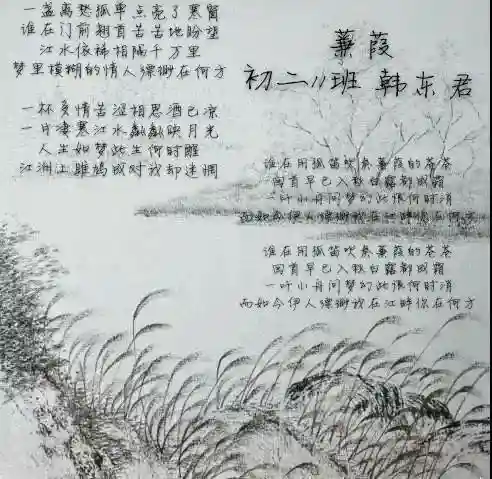 蒹葭
初二11班 韩东君
一盏离愁孤单点亮了寒窗
谁在门前翘首苦苦地盼望
江水依稀相隔千万里
梦里模糊的情人缥缈在何方
一杯多情苦涩相思酒已凉
一片凄寒江水粼粼映月光
人生如梦此生何时醒
江洲上雎鸠成对我却迷惘
谁在用孤笛吹奏蒹葭的苍
回首早已入秋白露都成霜
一叶小舟问梦幻此恨何时消
而如今伊人缥缈我在江畔你在何方
谁在用孤笛吹奏蒹葭的苍
回首早已入秋白露都成霜
一叶小舟问梦幻此恨何时消
而如今伊人缥缈我在江畔你在何方